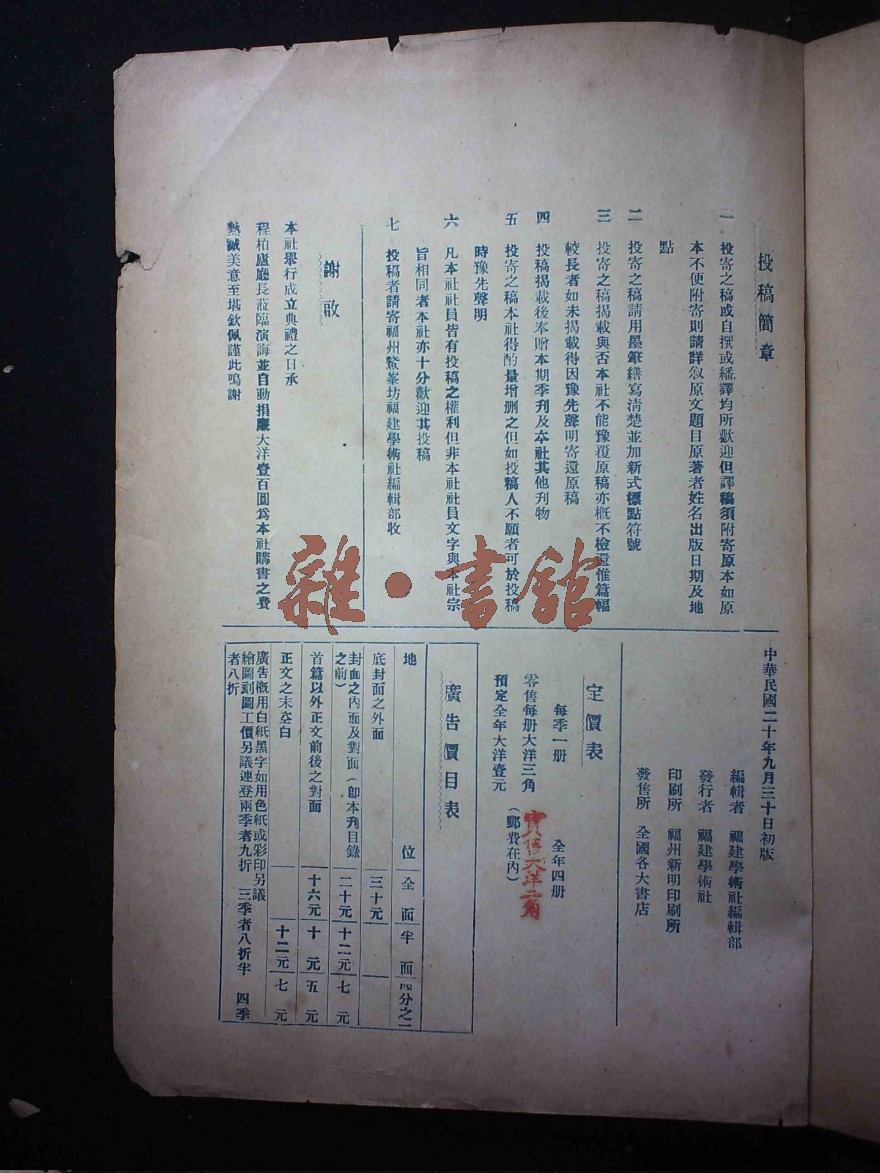 投稿簡章
一 投寄之稿或自撰或繙譯均所歡迎但譯稿須附寄原本如原
本不便附寄則請詳敘原文題目原著者姓名出版日期及地
點
二 投寄之稿請用墨筆繕寫清楚並加新式標點符號
三 投寄之稿揭載與否本社不能豫覆原稿亦概不檢還惟篇幅
較長者如未揭載得因豫先聲明寄還原稿
四 投稿揭載後奉贈本期季刋及本社其他刋物
五 投寄之稿本社得酌量增刪之但如投稿人不願者可於投稿
時豫先聲明
六 凡本社社員皆有投稿之權利但非本社社員文字與本社宗
旨相同者本社亦十分歡迎其投稿
七 投稿者請寄福州鰲峯坊福建學術社編輯部收
謝啟
本社舉行成立典禮之日承
程柏廬廳長蒞臨演誨並自動捐廉大洋壹百圓爲本社購書之費
熱誠美意至堪欽佩謹此鳴謝
中華民國二十年九月三十日初版
編輯者 福建學術社編輯部
發行者 福建學術社
印刷所 福州新明印刷所
發售所 全國各大書店
定價表
每季一册 全年四册
零售每册大洋三角
實售大洋二角
預定全年大洋壹元 (郵費在內)
廣告價目表
地 位 全面 半面 四分之一
底封面之外面 三十元
封面之內面及對面(卽本刋目錄之前) 二十元 十二元 七元
首篇以外正文前後之對面 十六元 十元 五元
正文之末空白 十二元 七元
廣告概用白紙黑字如用色紙或彩印另議
繪圖刻圖工價另議連登兩季者九折 三季者八折半 四季
者八折
雜·書館